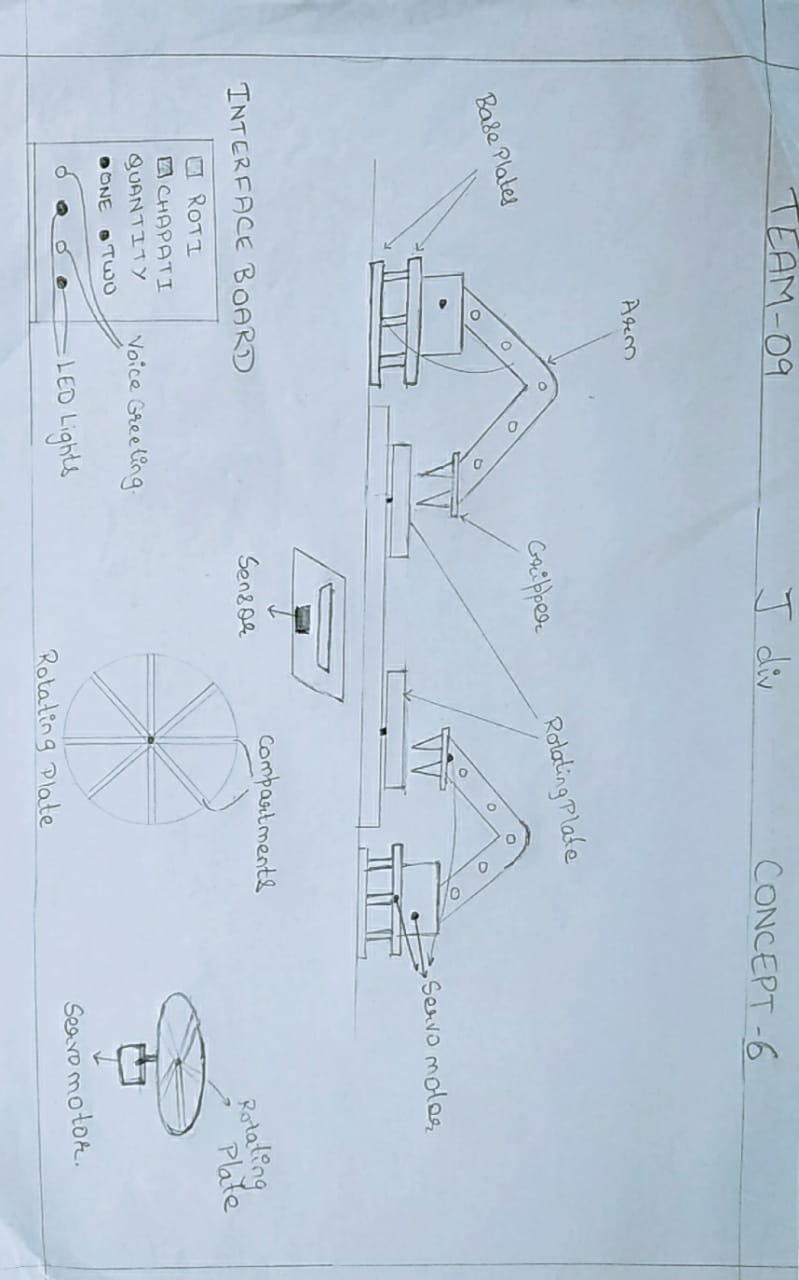 TEAM-09
J div
CONCEPT-6
Arm
Base Plates
Gripper
Rotating Plate
Servo motor
INTERFACE BOARD
ROTI
CHAPATI
QUANTITY
ONE TWO
Voice Greeting.
LED Lights
Sensor
Compartments
Rotating Plate
Rotating
Plate
Servomotor.